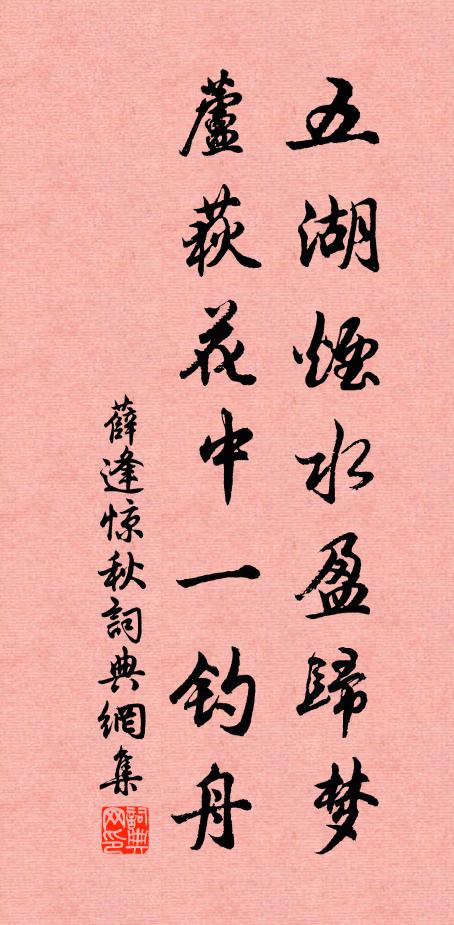 五湖煙水盈歸梦
蘆荻花中一钓舟
薛逢惊秋詞典網集
詞典网印